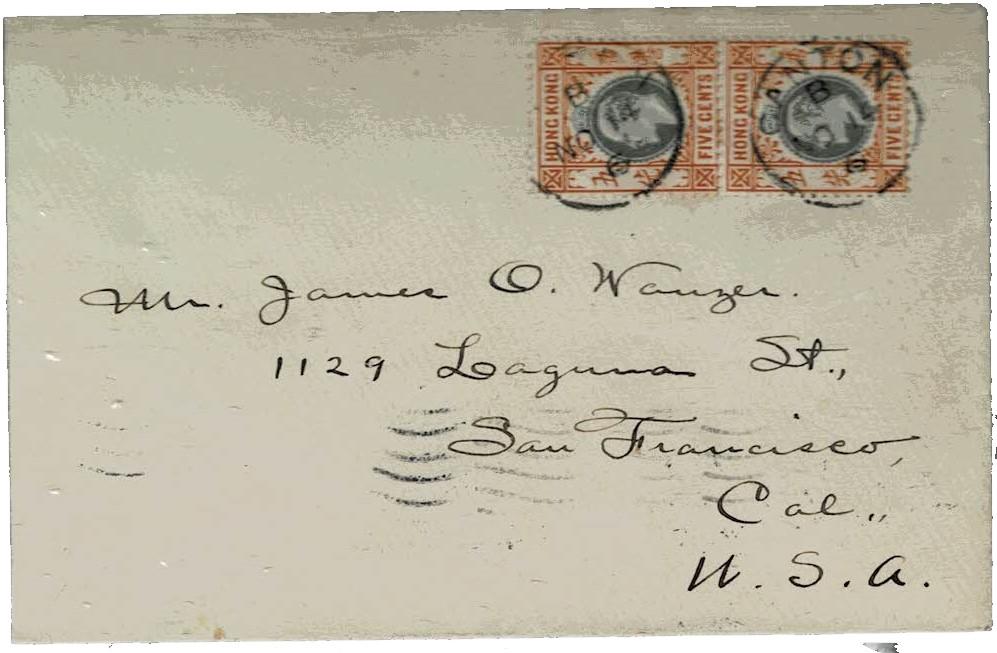 HONG KONG FIVE CENTS HONG KONG FIVE CENTS
B
NO 14
CANTON
B
NO
Mr. James O. Wanzer.
1129 Laguna St.,
San Francisco,
Cal.,
U. S. A.